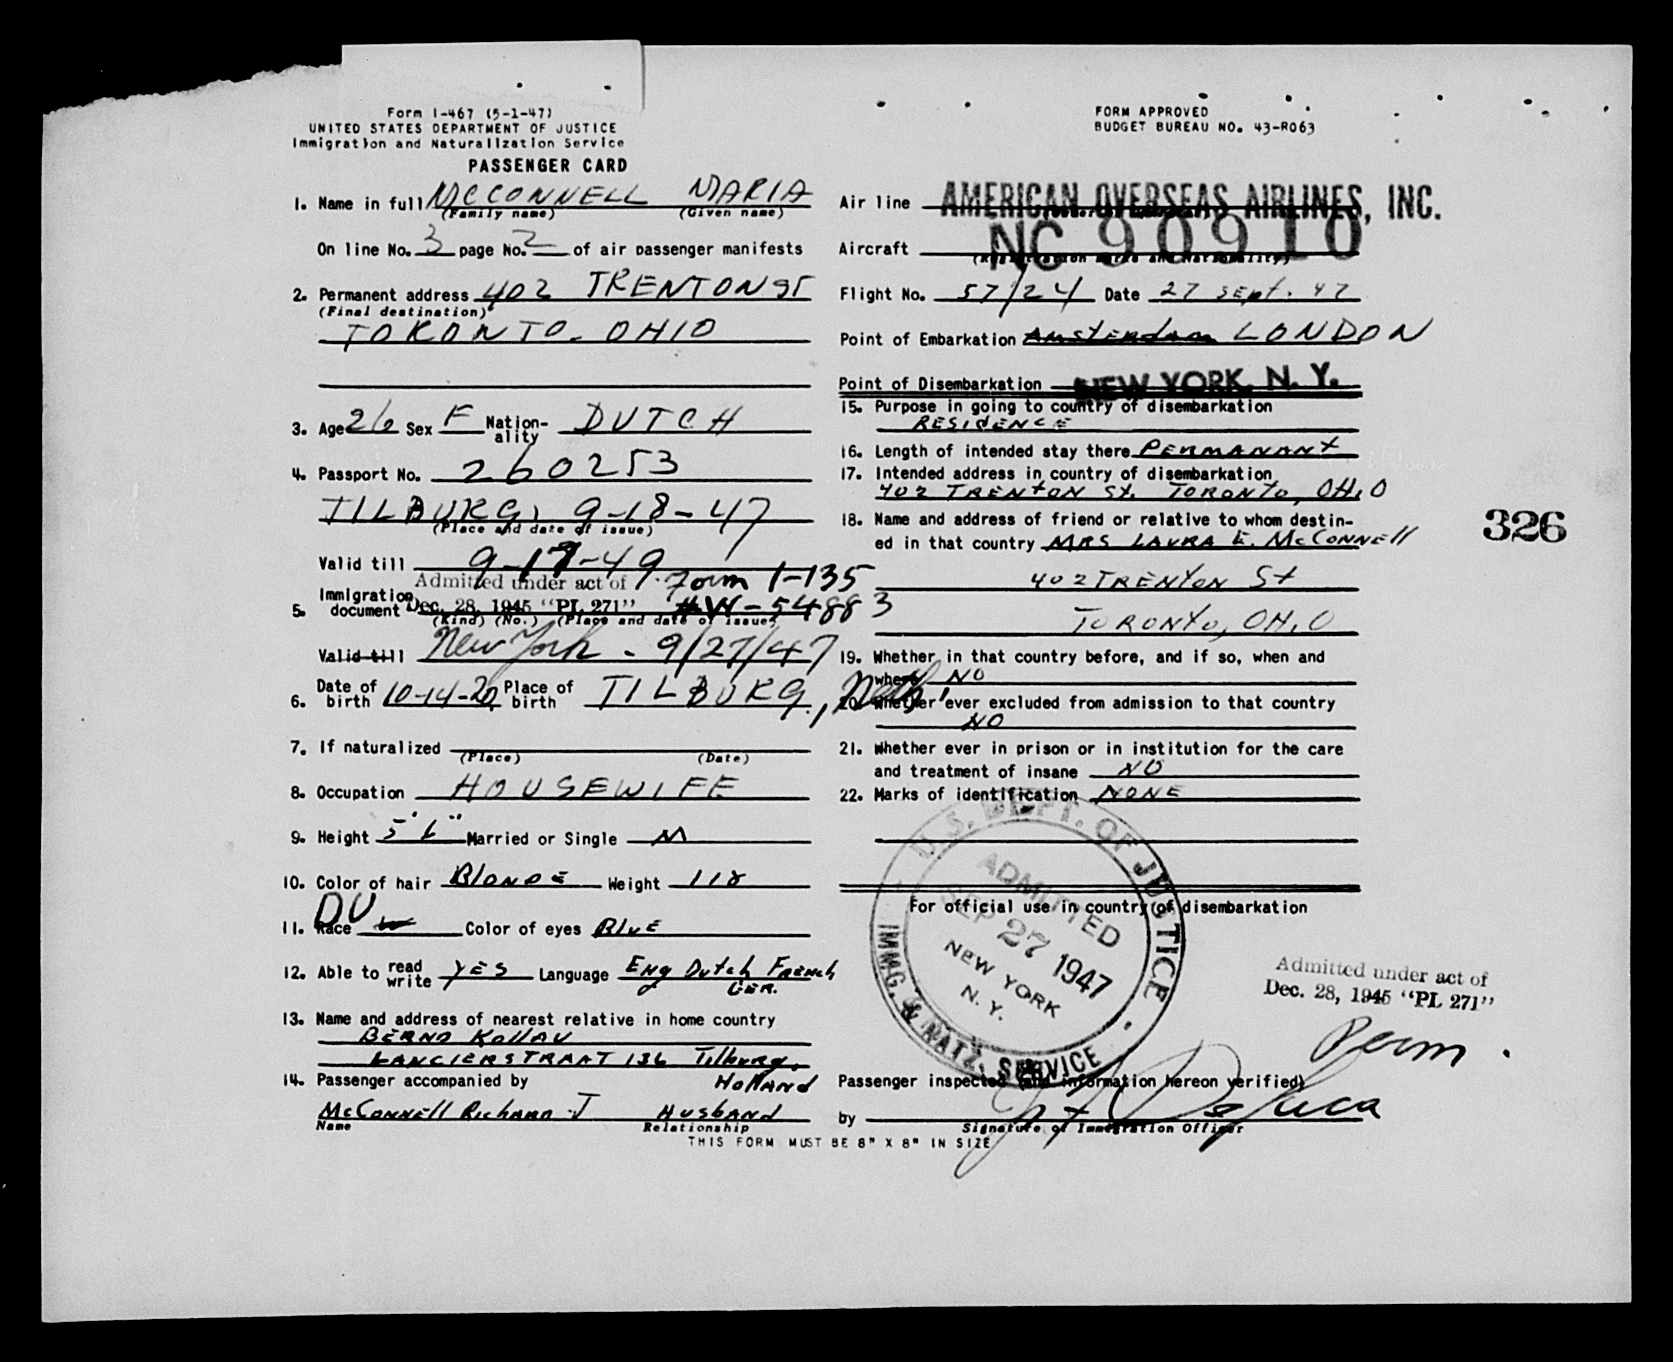 Form I-467 (5-1-47)
UNITED STATES DEPARTMENT OF JUSTICE
Immigration and Naturalization Service
PASSENGER CARD
FORM APPROVED
BUDGET BUREAU NO. 43-R063
1. Name in full MCCONNELL MARIA
(Family name) (Given name)
On line No. 3 page No. 2 of air passenger manifests
2. Permanent address 402 TRENTON ST
(Final destination)
TORONTO - OHIO
3. Age 26 Sex F Nation-ality DUTCH
4. Passport No. 260253
TILBURG, 9-18-47
(Place and date of issue)
Valid till 9-17-49
Admitted under act of Form I-135
5. Immigration document Dec. 28, 1945 "PL 271" #W-54883
(Kind) (No.) (Place and date of issue)
Valid till New York - 9/27/47
6. Date of birth 10-14-20 Place of birth TILBURG, Neth.
7. If naturalized
(Place) (Date)
8. Occupation HOUSEWIFE
9. Height 5' 6" Married or Single M
10. Color of hair BLONDE Weight 118
11. Race W DU Color of eyes BLUE
12. Able to read write YES Language Eng Dutch French
GER.
13. Name and address of nearest relative in home country
BERND Kollau
LANCIERSTRAAT 136 Tilburg.
HOLLAND
14. Passenger accompanied by
McConnell Richard J Husband
Name Relationship
THIS FORM MUST BE 8" X 8" IN SIZE
Air line AMERICAN OVERSEAS AIRLINES, INC.
Aircraft NC 90910
(Registration marks and nationality)
Flight No. 57/24 Date 27 Sept. 47
Point of Embarkation Amsterdam LONDON
Point of Disembarkation NEW YORK, N. Y.
15. Purpose in going to country of disembarkation
RESIDENCE
16. Length of intended stay there PERMANANT
17. Intended address in country of disembarkation
402 TRENTON St. TORONTO, OHIO
18. Name and address of friend or relative to whom destin-
ed in that country MRS LAURA E. McConnell
402 TRENTON St
TORONTO, OHIO
326
19. Whether in that country before, and if so, when and
where NO
20. Whether ever excluded from admission to that country
NO
21. Whether ever in prison or in institution for the care
and treatment of insane NO
22. Marks of identification NONE
For official use in country of disembarkation
U.S. DEPT. OF JUSTICE
ADMITTED
SEP 27 1947
NEW YORK
N. Y.
IMMG. & NATZ. SERVICE
Admitted under act of
Dec. 28, 1945 "PL 271"
Perm.
Passenger inspected (and information hereon verified)
by
Signature of Immigration Officer